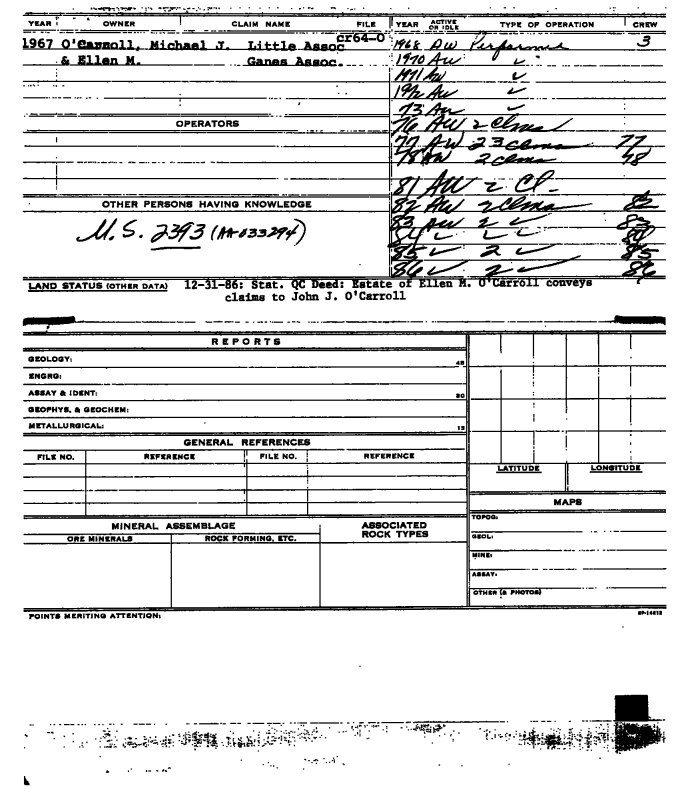 YEAR OWNER CLAIM NAME FILE YEAR ACTIVE OR IDLE TYPE OF OPERATION CREW
1967 O'Carroll, Michael J. Little Assoc cr64-0 1968 AW Performed 3
& Ellen M. Ganes Assoc. 1970 AW ✓
1971 AW ✓
1972 AW ✓
73 AW ✓
OPERATORS 76 AW 2 clms
77 AW 23 clms 77
78 AW 2 clms 78
81 AW 2 Cl.
OTHER PERSONS HAVING KNOWLEDGE 82 AW 2 clms 82
M.S. 2393 (AA-033294) 83 AW 2 ✓ 83
84 ✓ ✓ ✓
85 ✓ 2 ✓ 85
86 ✓ 2 ✓ 86
LAND STATUS (OTHER DATA) 12-31-86: Stat. QC Deed: Estate of Ellen M. O'Carroll conveys
claims to John J. O'Carroll
REPORTS
GEOLOGY: 45
ENGRG:
ASSAY & IDENT: 30
GEOPHYS. & GEOCHEM:
METALLURGICAL: 15
GENERAL REFERENCES
FILE NO. REFERENCE FILE NO. REFERENCE
LATITUDE LONGITUDE
MAPS
TOPOG:
GEOL:
MINE:
ASSAY:
OTHER (& PHOTOS)
MINERAL ASSEMBLAGE ASSOCIATED
ORE MINERALS ROCK FORMING, ETC. ROCK TYPES
POINTS MERITING ATTENTION: